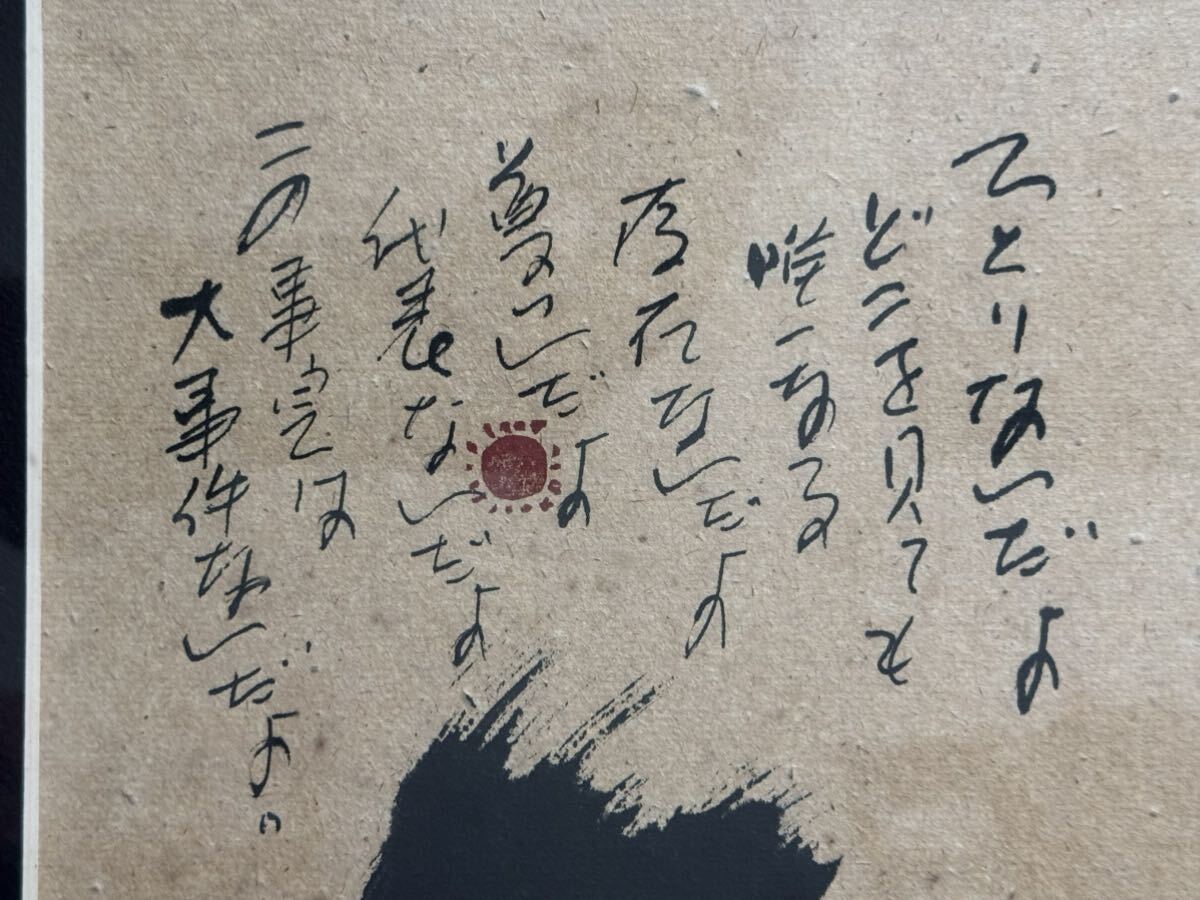 ひとりなンだよ
どこを見ても
唯一なる
存在なンだよ
尊いンだよ
代表なンだよ
この事実は
大事件なンだよ。